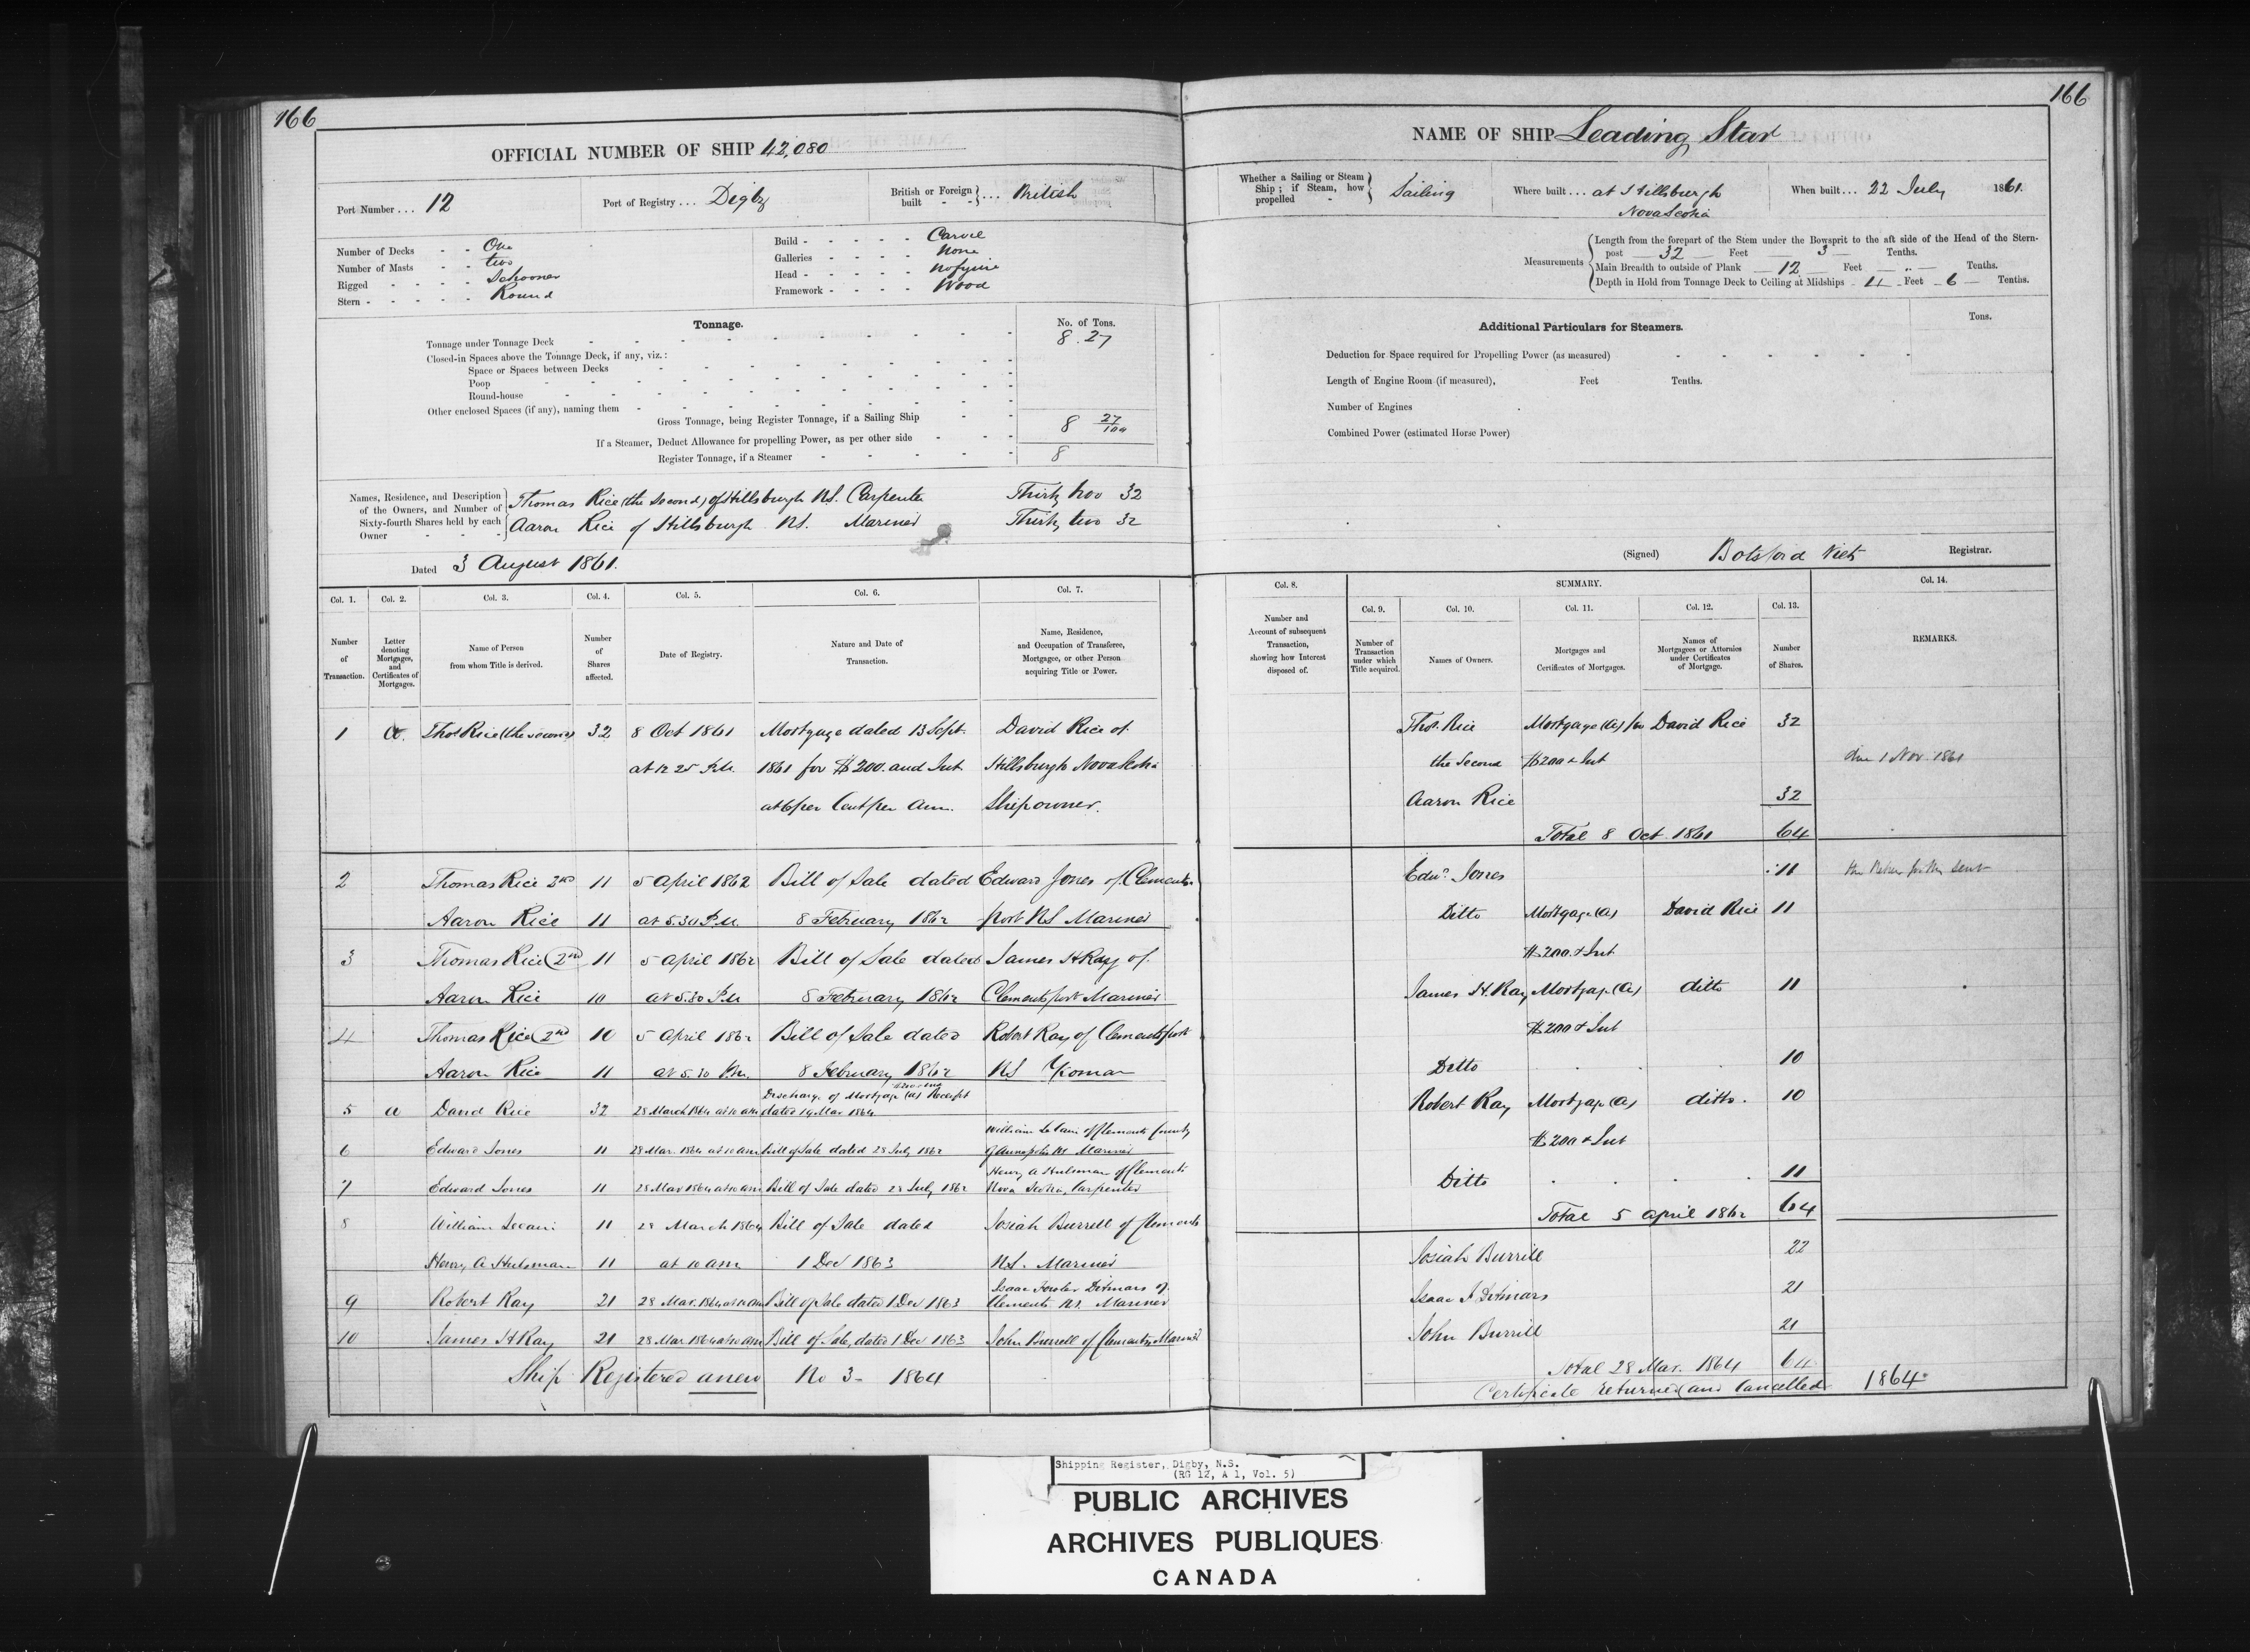 166
OFFICIAL NUMBER OF SHIP 42,080
Port Number ... 12
Port of Registry ... Digby
British or Foreign built - - } ... British
Number of Decks - - One
Number of Masts - - two
Rigged - - - - - Schooner
Stern - - - - - - Round
Build - - - - - Carvel
Galleries - - - - None
Head - - - - - No figure
Framework - - - - Wood
Tonnage.
No. of Tons.
Tonnage under Tonnage Deck 8.27
Closed-in Spaces above the Tonnage Deck, if any, viz.:
Space or Spaces between Decks
Poop
Round-house
Other enclosed Spaces (if any), naming them
Gross Tonnage, being Register Tonnage, if a Sailing Ship 8 27/100
If a Steamer, Deduct Allowance for propelling Power, as per other side
Register Tonnage, if a Steamer 8
Names, Residence, and Description
of the Owners, and Number of
Sixty-fourth Shares held by each
Owner
Thomas Rice (the Second) of Hillsburgh N.S. Carpenter Thirty two 32
Aaron Rice of Hillsburgh N.S. Mariner Thirty two 32
Dated 3 August 1861.
Col. 1. Col. 2. Col. 3. Col. 4. Col. 5. Col. 6. Col. 7.
Number of Transaction.
Letter denoting Mortgages, and Certificates of Mortgages.
Name of Person from whom Title is derived.
Number of Shares affected.
Date of Registry.
Nature and Date of Transaction.
Name, Residence, and Occupation of Transferee, Mortgagee, or other Person acquiring Title or Power.
1 a. Thos Rice (the second) 32 8 Oct 1861 Mortgage dated 13 Sept. David Rice of
at 12 25 P.M. 1861 for $200. and Int Hillsburgh Nova Scotia
at 6 per Cent per Ann. Shipowner.
2 Thomas Rice 2nd 11 5 April 1862 Bill of Sale dated Edward Jones of Clements
Aaron Rice 11 at 5.30 P.M. 8 February 1862 port NS Mariner
3 Thomas Rice (2nd) 11 5 April 1862 Bill of Sale dated James H Ray of
Aaron Rice 10 at 5.30 P.M 8 February 1862 Clementsport Mariner
4 Thomas Rice (2nd) 10 5 April 1862 Bill of Sale dated Robert Ray of Clementsport
Aaron Rice 11 at 5.30 P.M. 8 February 1862 NS Yeoman
5 a David Rice 32 28 March 1864 at 10 am Discharge of Mortgage (a) Receipt
dated 19 Mar 1864
6 Edward Jones 11 28 Mar. 1864 at 10 am Bill of Sale dated 28 July 1862 William of Clements County
of Annapolis NS Mariner
7 Edward Jones 11 28 Mar 1864 at 10 am Bill of Sale dated 28 July 1862 Henry A Hulsman of Clements
Nova Scotia, Carpenter
8 William 11 28 March 1864 Bill of Sale dated Josiah Burrell of Clements
Henry A Hulsman 11 at 10 am 1 Dec 1863 N.S. Mariner
9 Robert Ray 21 28 Mar. 1864 at 10 am Bill of Sale dated 1 Dec 1863 Isaac Ditmars of
Clements NS. Mariner
10 James H Ray 21 28 Mar 1864 at 10 am Bill of Sale, dated 1 Dec 1863 John Burrell of Clements, Mariner
Ship Registered anew No 3 - 1864
166
NAME OF SHIP Leading Star
Whether a Sailing or Steam Ship; if Steam, how propelled - } Sailing
Where built ... at Hillsburgh
Nova Scotia
When built ... 22 July 1861.
Measurements
Length from the forepart of the Stem under the Bowsprit to the aft side of the Head of the Stern-
post 32 Feet 3 Tenths.
Main Breadth to outside of Plank 12 Feet " Tenths.
Depth in Hold from Tonnage Deck to Ceiling at Midships 4 Feet 6 Tenths.
Additional Particulars for Steamers.
Tons.
Deduction for Space required for Propelling Power (as measured)
Length of Engine Room (if measured), Feet Tenths.
Number of Engines
Combined Power (estimated Horse Power)
(Signed) Botsford Viets Registrar.
Col. 8. SUMMARY. Col. 14.
Col. 9. Col. 10. Col. 11. Col. 12. Col. 13.
Number and Account of subsequent Transaction, showing how Interest disposed of.
Number of Transaction under which Title acquired.
Names of Owners.
Mortgages and Certificates of Mortgages.
Names of Mortgagees or Attornies under Certificates of Mortgage.
Number of Shares.
REMARKS.
Thos. Rice Mortgage (a) for David Rice 32
the Second $200 & Int due 1 Nov. 1861
Aaron Rice 32
Total 8 Oct. 1861 64
Edwd. Jones 11
Ditto Mortgage (a) David Rice 11
$200 & Int
James H. Ray Mortgage (a) ditto 11
$200 & Int
Ditto 10
Robert Ray Mortgage (a) ditto. 10
$200 & Int
Ditto 11
Total 5 April 1862 64
Josiah Burrill 22
Isaac F Ditmars 21
John Burrill 21
Total 28 Mar. 1864 64
Certificate returned and Cancelled 1864
Shipping Register, Digby, N.S.
(RG 12, A 1, Vol. 5)
PUBLIC ARCHIVES
ARCHIVES PUBLIQUES
CANADA